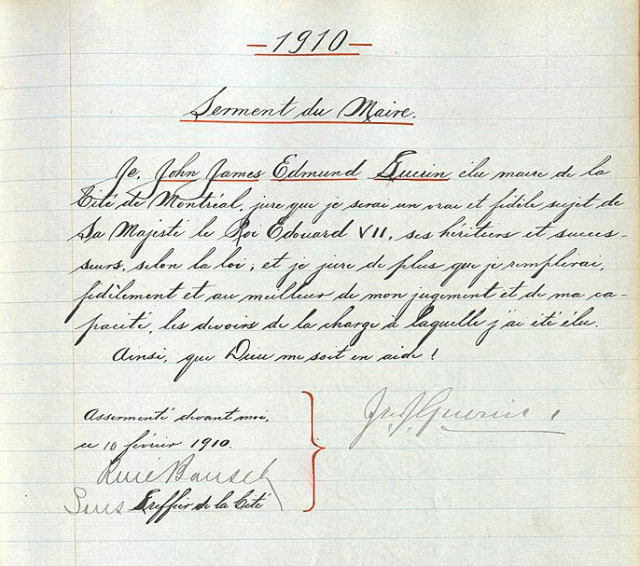 -1910-
Serment du Maire.
Je, John James Edmund Guerin élu maire de la
Cité de Montréal, jure que je serai un vrai et fidèle sujet de
Sa Majesté le Roi Edouard VII, ses héritiers et succes-
seurs, selon la loi; et je jure de plus que je remplirai,
fidèlement et au meilleur de mon jugement et de ma ca-
pacité, les devoirs de la charge à laquelle j'ai été élu.
Ainsi, que Dieu me soit en aide!
Assermenté devant moi,
ce 10 février 1910.
René Bauset
Greffier de la Cité
Guerin